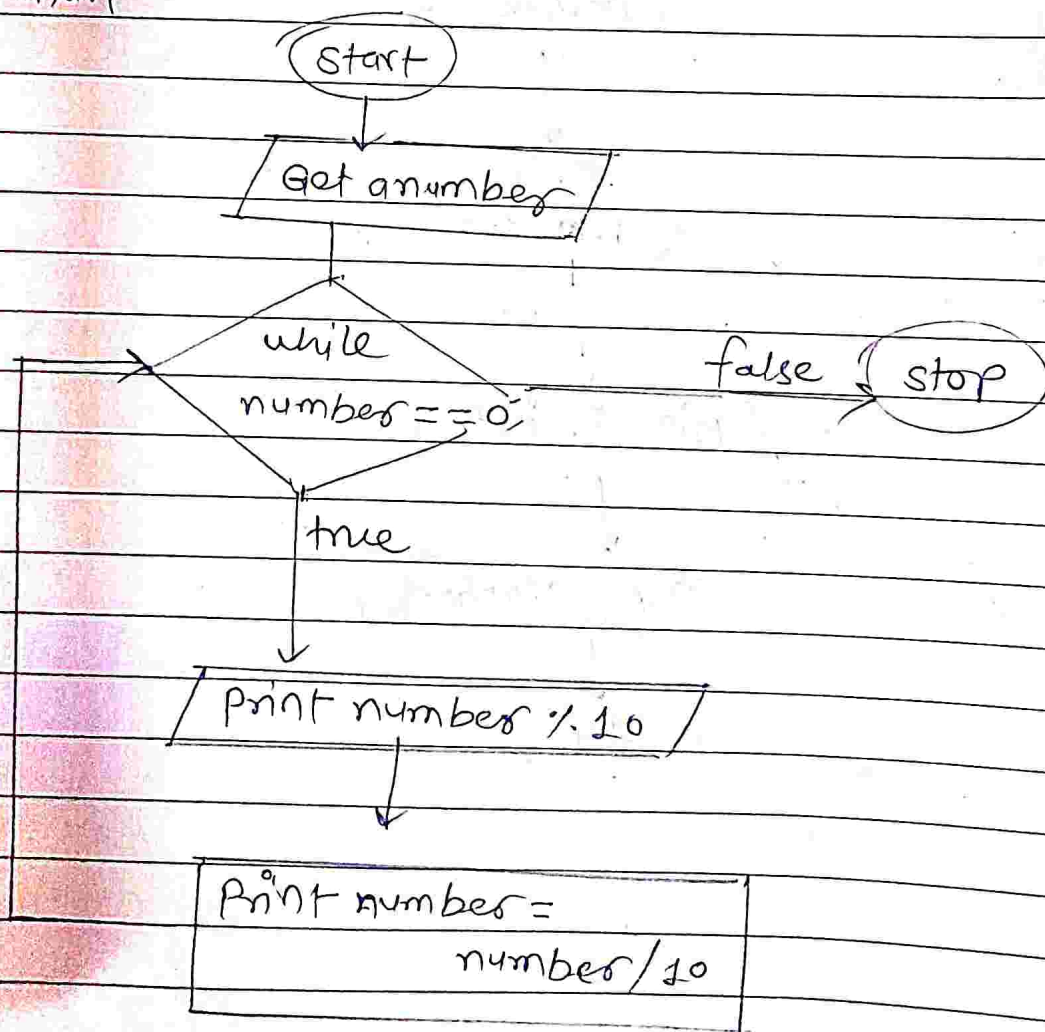 start
Get anumber
while
number==0;
false
stop
true
Print number % 10
Print number =
number/10